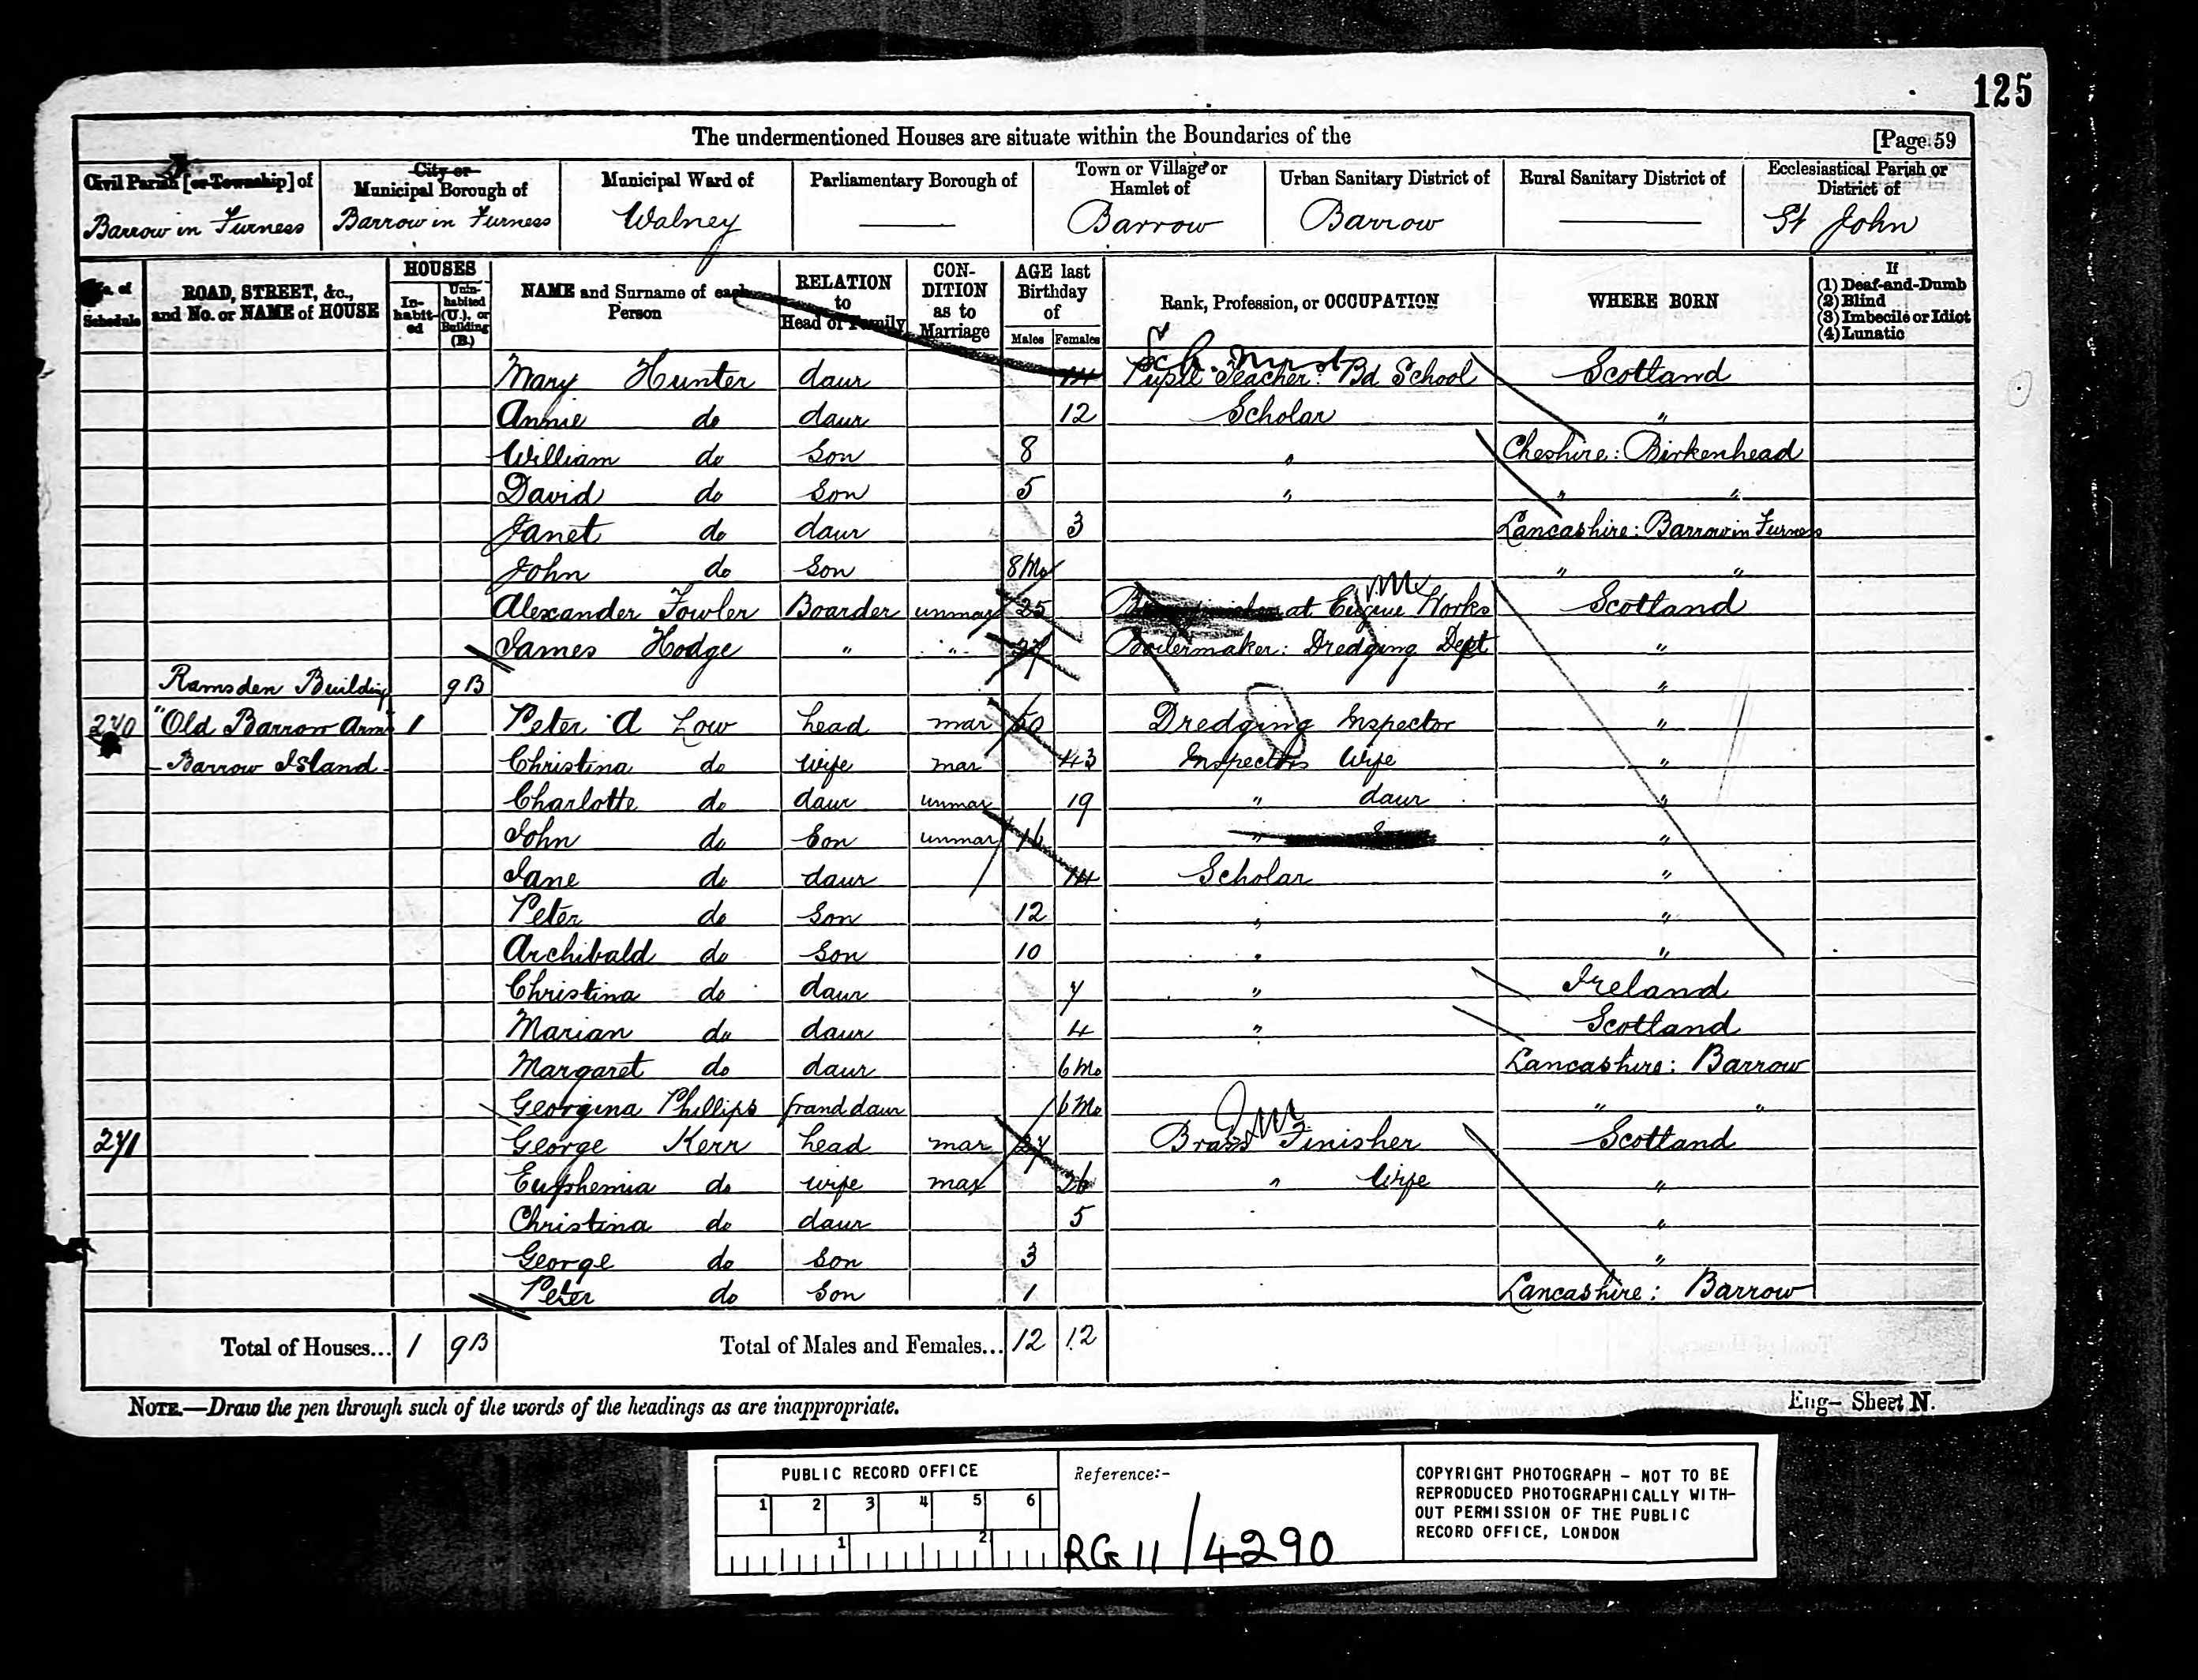 125
The undermentioned Houses are situate within the Boundaries of the [Page 59
Civil Parish [or Township] of City or Municipal Borough of Municipal Ward of Parliamentary Borough of Town or Village or Hamlet of Urban Sanitary District of Rural Sanitary District of Ecclesiastical Parish or District of
Barrow in Furness Barrow in Furness Walney Barrow Barrow St John
No. of Schedule ROAD, STREET, &c., and No. or NAME of HOUSE HOUSES In-habit-ed Unin-habited (U.), or Building (B.) NAME and Surname of each Person RELATION to Head of Family CON-DITION as to Marriage AGE last Birthday of Males Females Rank, Profession, or OCCUPATION WHERE BORN If (1) Deaf-and-Dumb (2) Blind (3) Imbecile or Idiot (4) Lunatic
Mary Hunter daur 14 Pupil Teacher: Bd School Scotland
Annie do daur 12 Scholar "
William do Son 8 " Cheshire: Birkenhead
David do Son 5 " " "
Janet do daur 3 Lancashire: Barrow in Furness
John do Son 8 Mo " "
Alexander Fowler Boarder unmar 25 at Engine Works Scotland
James Hodge " " 27 Boilermaker: Dredging Dept "
Ramsden Building 9 B "
270 "Old Barrow Arms" 1 Peter A Low head mar 50 Dredging Inspector "
Barrow Island Christina do wife mar 43 Inspectors Wife "
Charlotte do daur unmar 19 " daur "
John do Son unmar 16 " "
Jane do daur 14 Scholar "
Peter do Son 12 " "
Archibald do Son 10 " "
Christina do daur 7 " Ireland
Marian do daur 4 " Scotland
Margaret do daur 6 Mo Lancashire: Barrow
Georgina Phillips grand daur 6 Mo " "
271 George Kerr head mar 27 Brass Finisher Scotland
Euphemia do wife mar 26 " Wife "
Christina do daur 5 "
George do son 3 "
Peter do Son 1 Lancashire: Barrow
Total of Houses... 1 9 B Total of Males and Females... 12 12
NOTE.—Draw the pen through such of the words of the headings as are inappropriate. Eng- Sheet N.
PUBLIC RECORD OFFICE
1 2 3 4 5 6
1 2
Reference:-
RG 11 / 4290
COPYRIGHT PHOTOGRAPH - NOT TO BE
REPRODUCED PHOTOGRAPHICALLY WITH-
OUT PERMISSION OF THE PUBLIC
RECORD OFFICE, LONDON